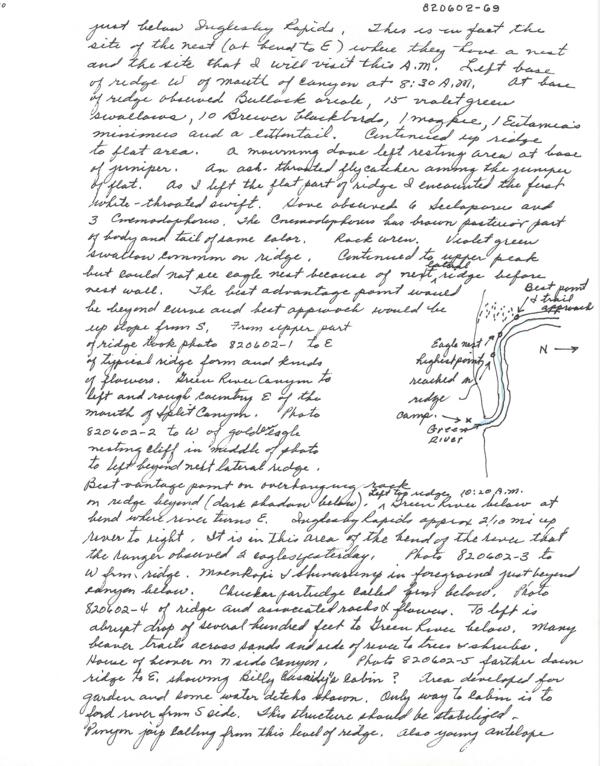 820602-69
just below Inglesby Rapids. This is in fact the
site of the nest (at bend to E) where they have a nest
and the site that I will visit this A.M. Left base
of ridge W of mouth of canyon at 8:30 A.M. At base
of ridge observed Bullock oriole, 15 violet green
swallows, 10 Brewer blackbirds, 1 magpie, 1 Eutamias
minimus and a cottontail. Continued up ridge
to flat area. A mourning dove left resting area at base
of juniper. An ash-throated flycatcher among the juniper
of flat. As I left the flat part of ridge I encounted the first
white-throated swift. Some observed 6 Sceloporus and
3 Cnemodophorus. The Cnemodophorus has brown posterior part
of body and tail of same color. Rock wren. Violet green
swallow common on ridge. Continued to upper peak
but could not see eagle nest because of next lateral ridge before
nest wall. The best advantage point would
be beyond curve and best approach would be
up slope from S. From upper part
of ridge took photo 820602-1 to E
of typical ridge form and kinds
of flowers. Green River Canyon to
left and rough country E of the
mouth of Split Canyon. Photo
820602-2 to W of golden eagle
nesting cliff in middle of photo
to left beyond next lateral ridge.
Best point
& trail
approach
Eagle nest
highest point
reached on
ridge
N
camp.
Green
River
Best vantage point on overhanging rock
on ridge beyond (dark shadow below). Left top ridge 10:20 A.M. Green River below at
bend where river turns E. Inglesby Rapids approx 2/10 mi up
river to right. It is in this area of the bend of the river that
the ranger observed 2 eagles yesterday. Photo 820602-3 to
W from ridge. Moenkopi & Shinarump in foreground just beyond
canyon below. Chuckar partridge called from below. Photo
820602-4 of ridge and associated rocks & flowers. To left is
abrupt drop of several hundred feet to Green River below. Many
beaver trails across sands and side of river to trees & shrubs.
House of beaver on N side Canyon. Photo 820602-5 farther down
ridge to E. showing Billy Cassidy's cabin? Area developed for
garden and some water detchs shown. Only way to cabin is to
ford rover from S side. This structure should be stabilized -
Pinyon jay calling from this level of ridge. Also young antelope